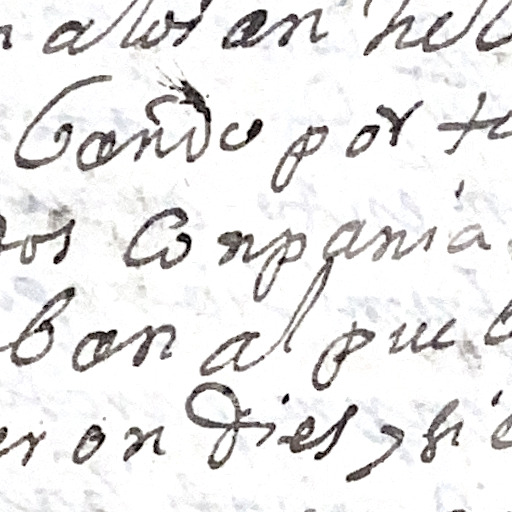 n alos an hel
bando por t
dos Conpania
ban al pueb
eron dies y sie